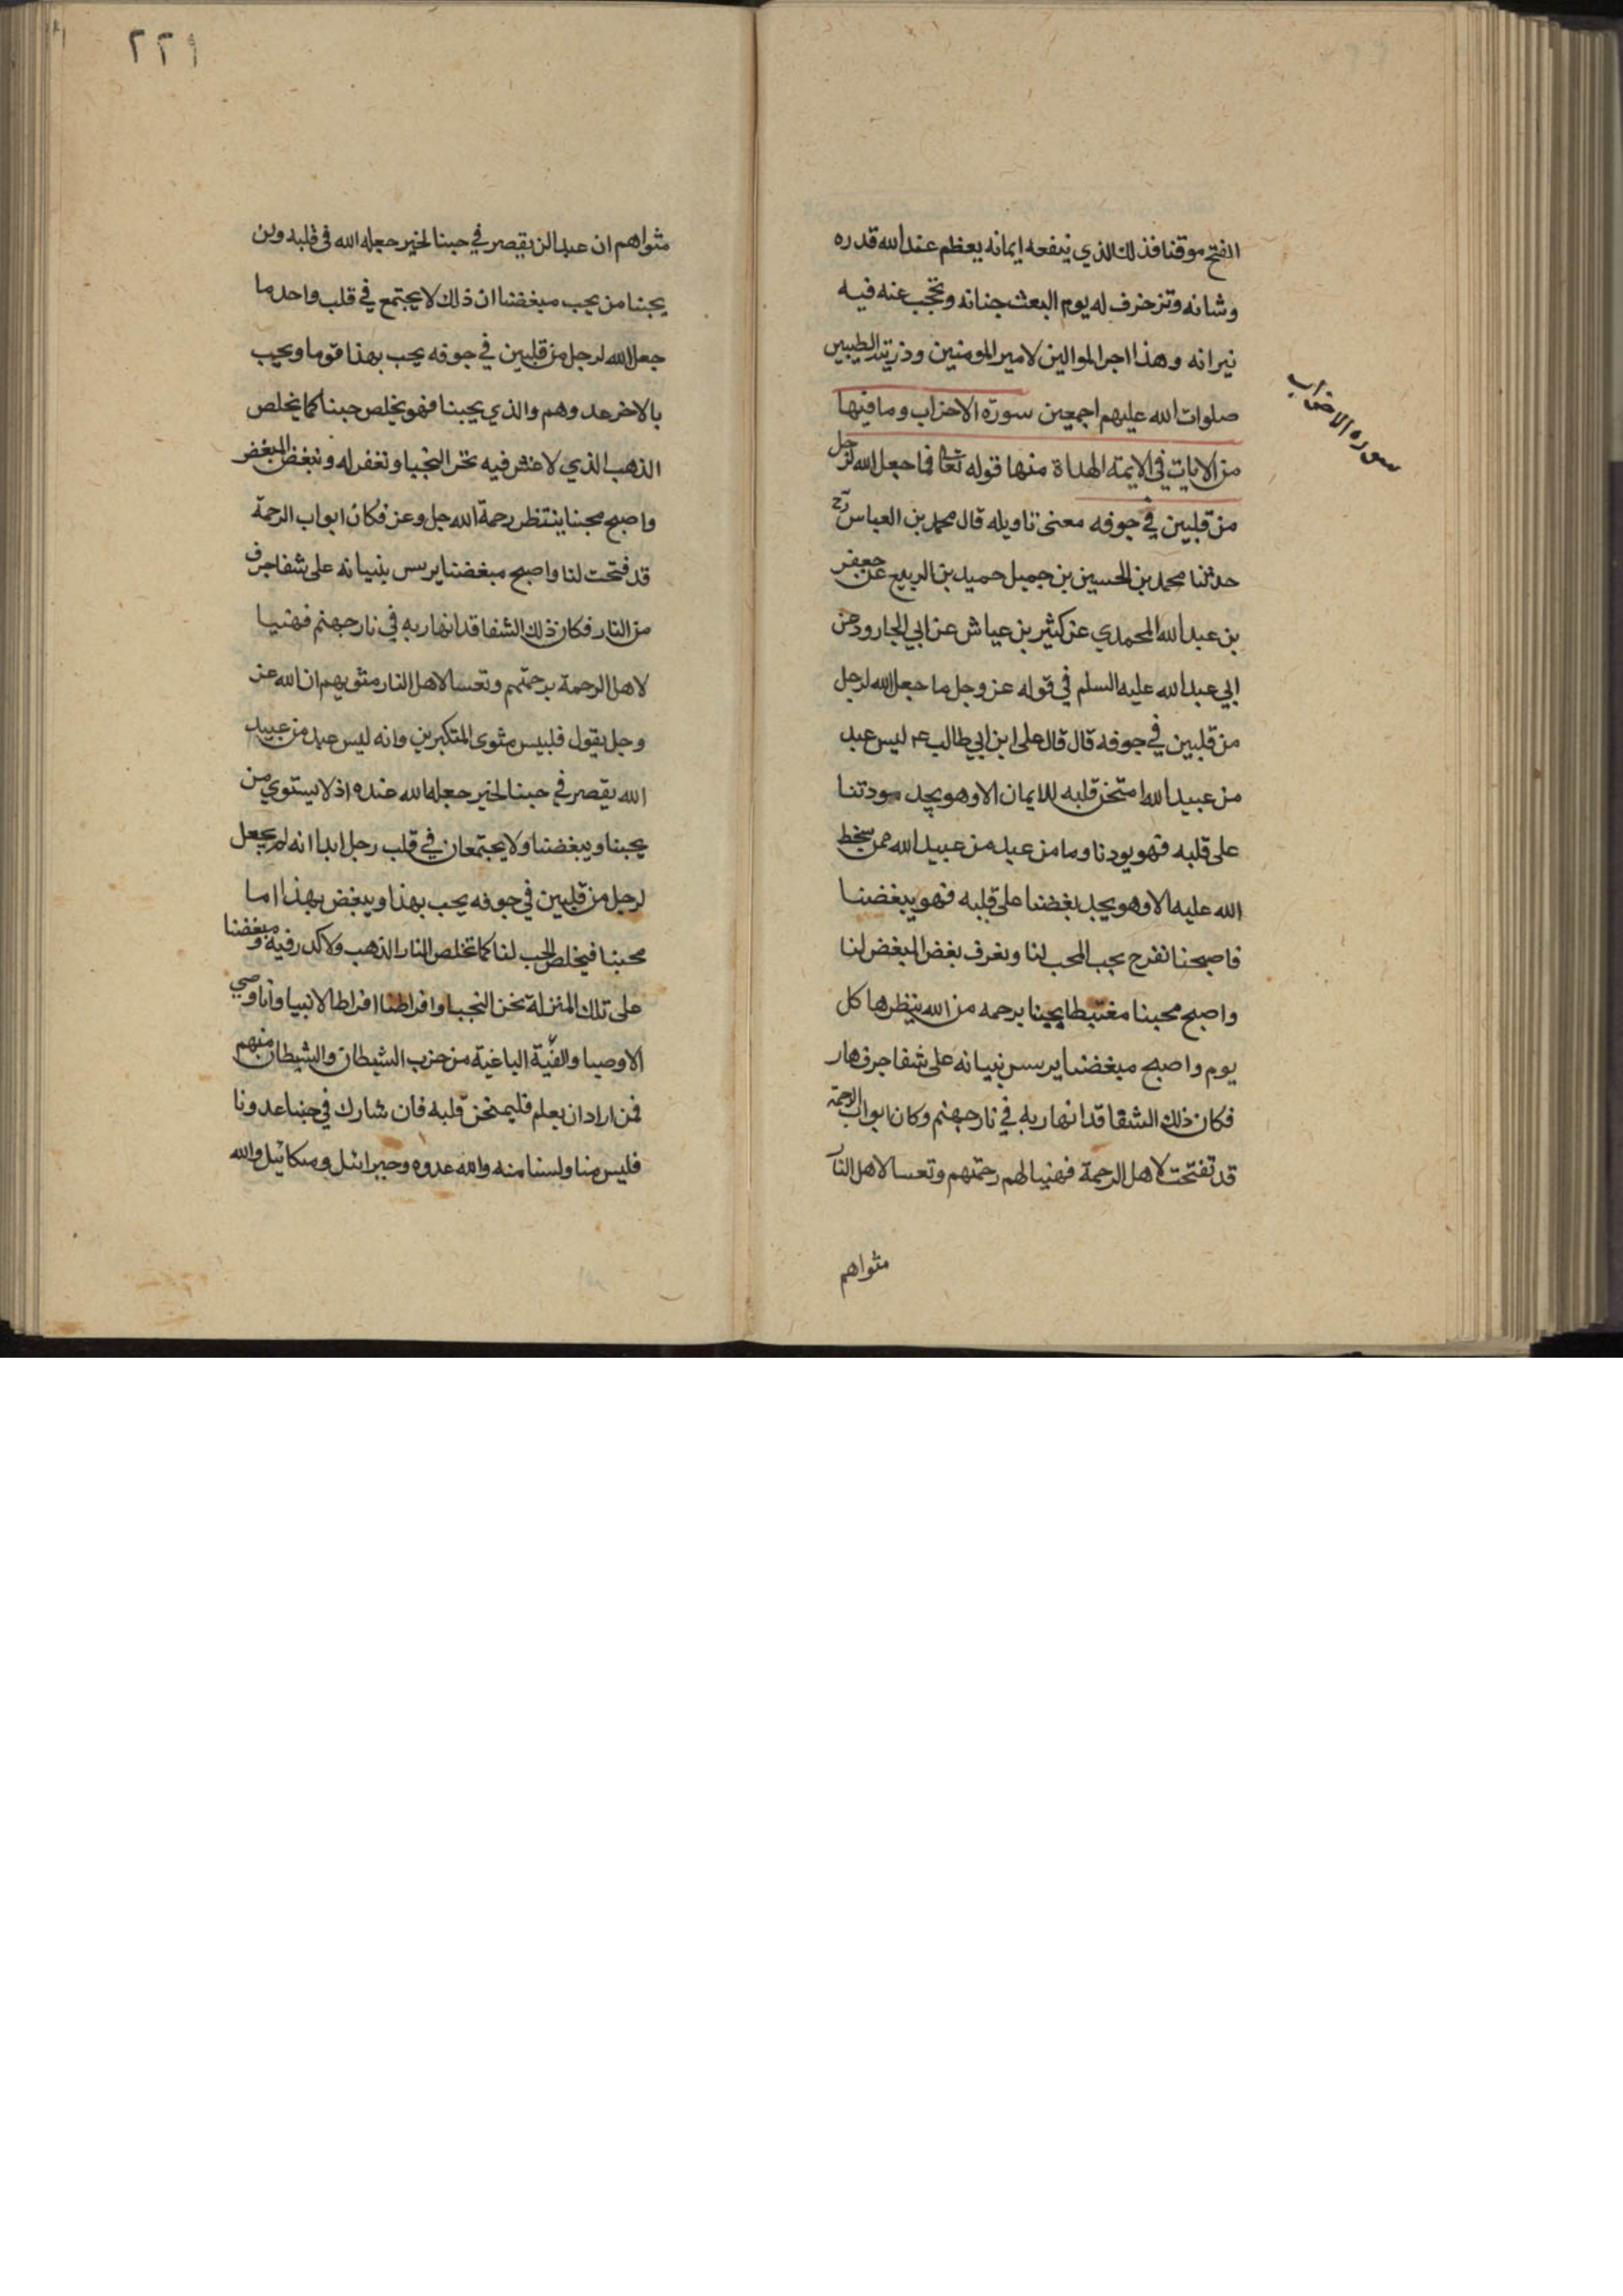 الفتح موقنا فذلك الذي ينفعه ايمانه يعظم عند الله قدره
وشانه وتزخرف له يوم البعث جنانه وتحجب عنه فيه
نيرانه وهذا اجر الموالين لامير المومنين وذريته الطيبين
صلوات الله عليهم اجمعين سورة الاحزاب وما فيها
سوره الاحزاب
من الايات في الايمة الهداة منها قوله تعا ما جعل الله لرجل
من قلبين في جوفه معنى تاويله قال محمد بن العباس رح
حدثنا محمد بن الحسين بن حميد بن الربيع عن جعفر
بن عبد الله المحمدي عن كثير بن عياش عن ابي الجارود عن
ابي عبد الله عليه السلم في قوله عز وجل ما جعل الله لرجل
من قلبين في جوفه قال قال على ابن ابي طالب ع ليس عبد
من عبيد الله امتحن قلبه للايمان الا وهو يجد مودتنا
على قلبه فهو يودنا وما من عبد من عبيد الله ممن سخط
الله عليه الا وهو يجد بغضنا على قلبه فهو يبغضنا
فاصبحنا نفرح بحب المحب لنا ونعرف بغض المبغض لنا
واصبح محبنا مغتبطا بحبنا برحمه من الله ينظرها كل
يوم واصبح مبغضنا يرسس بنيانه على شفا جرف هار
فكان ذلك الشفا قد انهار به في نار جهنم وكان ابواب الرحمة
قد تفتحت لاهل الرحمة فهنيا لهم رحمتهم وتعسا لاهل النار
مثواهم
٢٢٩
مثواهم ان عبدا لن يقصر في حبنا لخير جعله الله في قلبه ولن
يحبنا من يحب مبغضنا ان ذلك لا يجتمع في قلب واحد ما
جعل الله لرجل من قلبين في جوفه يحب بهذا قوما ويحب
بالاخر عدوهم والذي يحبنا فهو يخلص حبنا كما يخلص
الذهب الذي لا غش فيه نحن النجبا ونغفر له ونبغض المبغض
واصبح محبنا ينتظر رحمة الله جل وعز فكان ابواب الرحمة
قد فتحت لنا واصبح مبغضنا يرسس بنيانه على شفا جرف
من النار فكان ذلك الشفا قد انهار به في نار جهنم فهنيا
لاهل الرحمة برحمتهم وتعسا لاهل النار مثويهم ان الله عز
وجل يقول فلبيس مثوى المتكبرين وانه ليس عبد من عبيد
الله يقصر في حبنا لخير جعله الله عنده اذ لا يستوي من
يحبنا ويبغضنا ولا يجتمعان في قلب رجل ابدا انه لم يجعل
لرجل من قلبين في جوفه يحب بهذا ويبغض بهذا اما
محبنا فيخلص الحب لنا كما تخلص النار الذهب ولا كدر فيه ومبغضنا
على تلك المنزلة نحن النجبا وافراطنا افراط الانبيا وانا وصي
الاوصيا والفية الباغية من حزب الشيطان والشيطان منهم
فمن اراد ان يعلم فليمتحن قلبه فان شارك في حبنا عدونا
فليس منا ولسنا منه والله عدوه وجبرائيل وميكائيل والله